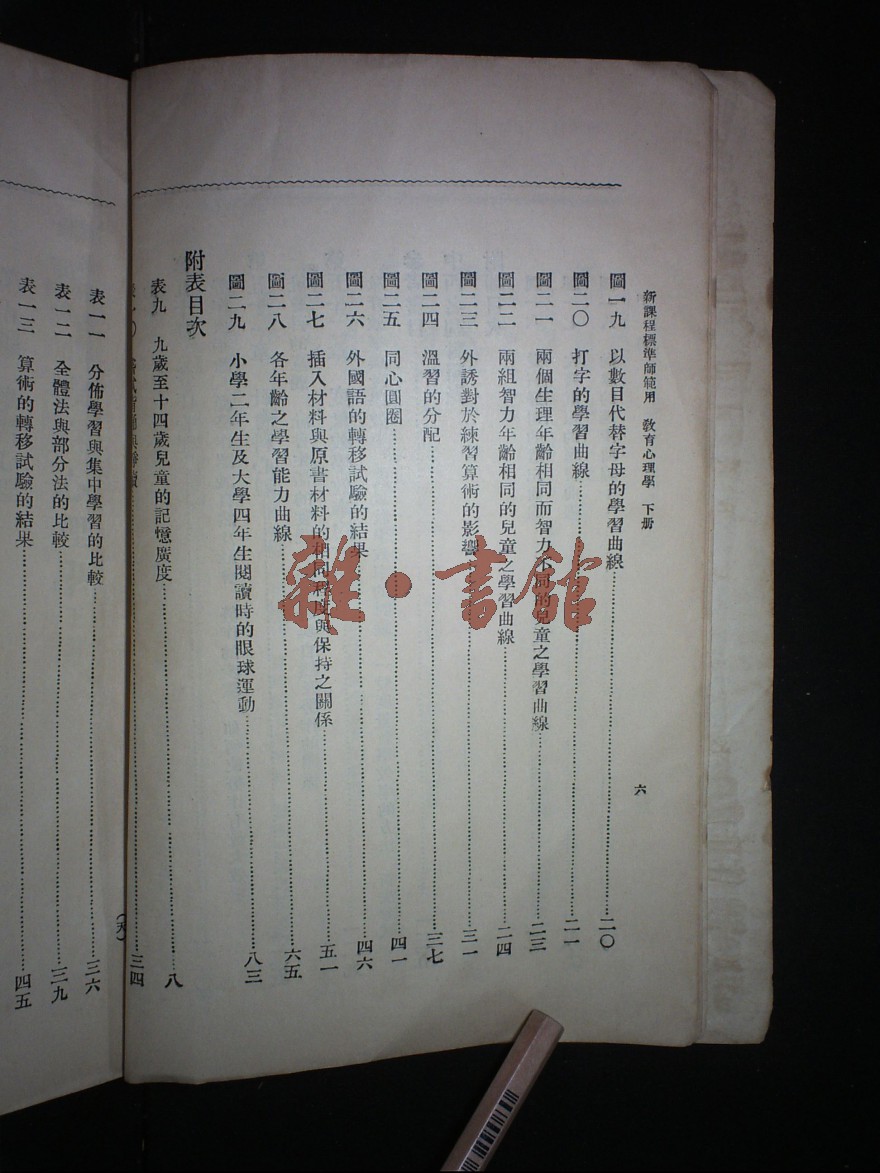 新課程標準師範用 敎育心理學 下册
六
圖一九 以數目代替字母的學習曲線 二〇
圖二〇 打字的學習曲線 二一
圖二一 兩個生理年齡相同而智力不同的兒童之學習曲線 二三
圖二二 兩組智力年齡相同的兒童之學習曲線 二四
圖二三 外誘對於練習算術的影響 三一
圖二四 溫習的分配 三七
圖二五 同心圓圈 四一
圖二六 外國語的轉移試驗的結果 四六
圖二七 插入材料與原書材料的相同程度與保持之關係 五一
圖二八 各年齡之學習能力曲線 六五
圖二九 小學二年生及大學四年生閱讀時的眼球運動 八三
附表目次
表九 九歲至十四歲兒童的記憶廣度 八
表一〇 三四
表一一 分佈學習與集中學習的比較 三六
表一二 全體法與部分法的比較 三九
表一三 算術的轉移試驗的結果 四五
雜·書館